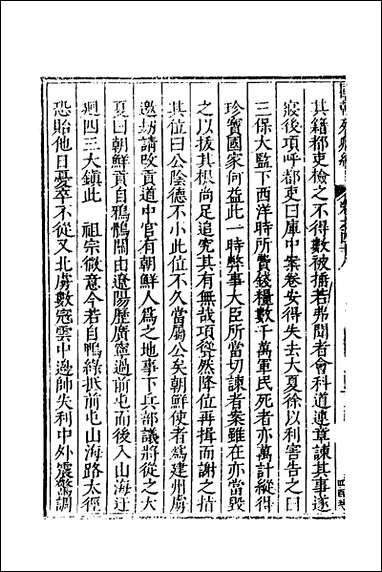 其籍都吏檢之不得數被撻若弗聞者會科道連章諫其事遂
寢後項呼都吏曰庫中案卷安得失去大夏徐以利害告之曰
三保大監下西洋時所費錢糧數千萬軍民死者亦萬計縱得
珍寶國家何益此一時弊事大臣所當切諫者案雖在亦當毀
之以拔其根尚足追究其有無哉項聳然降位再揖而謝之指
其位曰公陰德不小此位不久當屬公矣朝鮮使者爲建州虜
邀刼請改貢道中官有朝鮮人爲之地事下兵部議將從之大
夏曰朝鮮貢自鴉鶻關由遼陽歷廣寧過前屯而後入山海迂
廻四三大鎮此 祖宗微意今若自鴨綠抵前屯山海路太徑
恐貽他日憂卒不從又北虜數寇雲中邊師失利中外震驚調